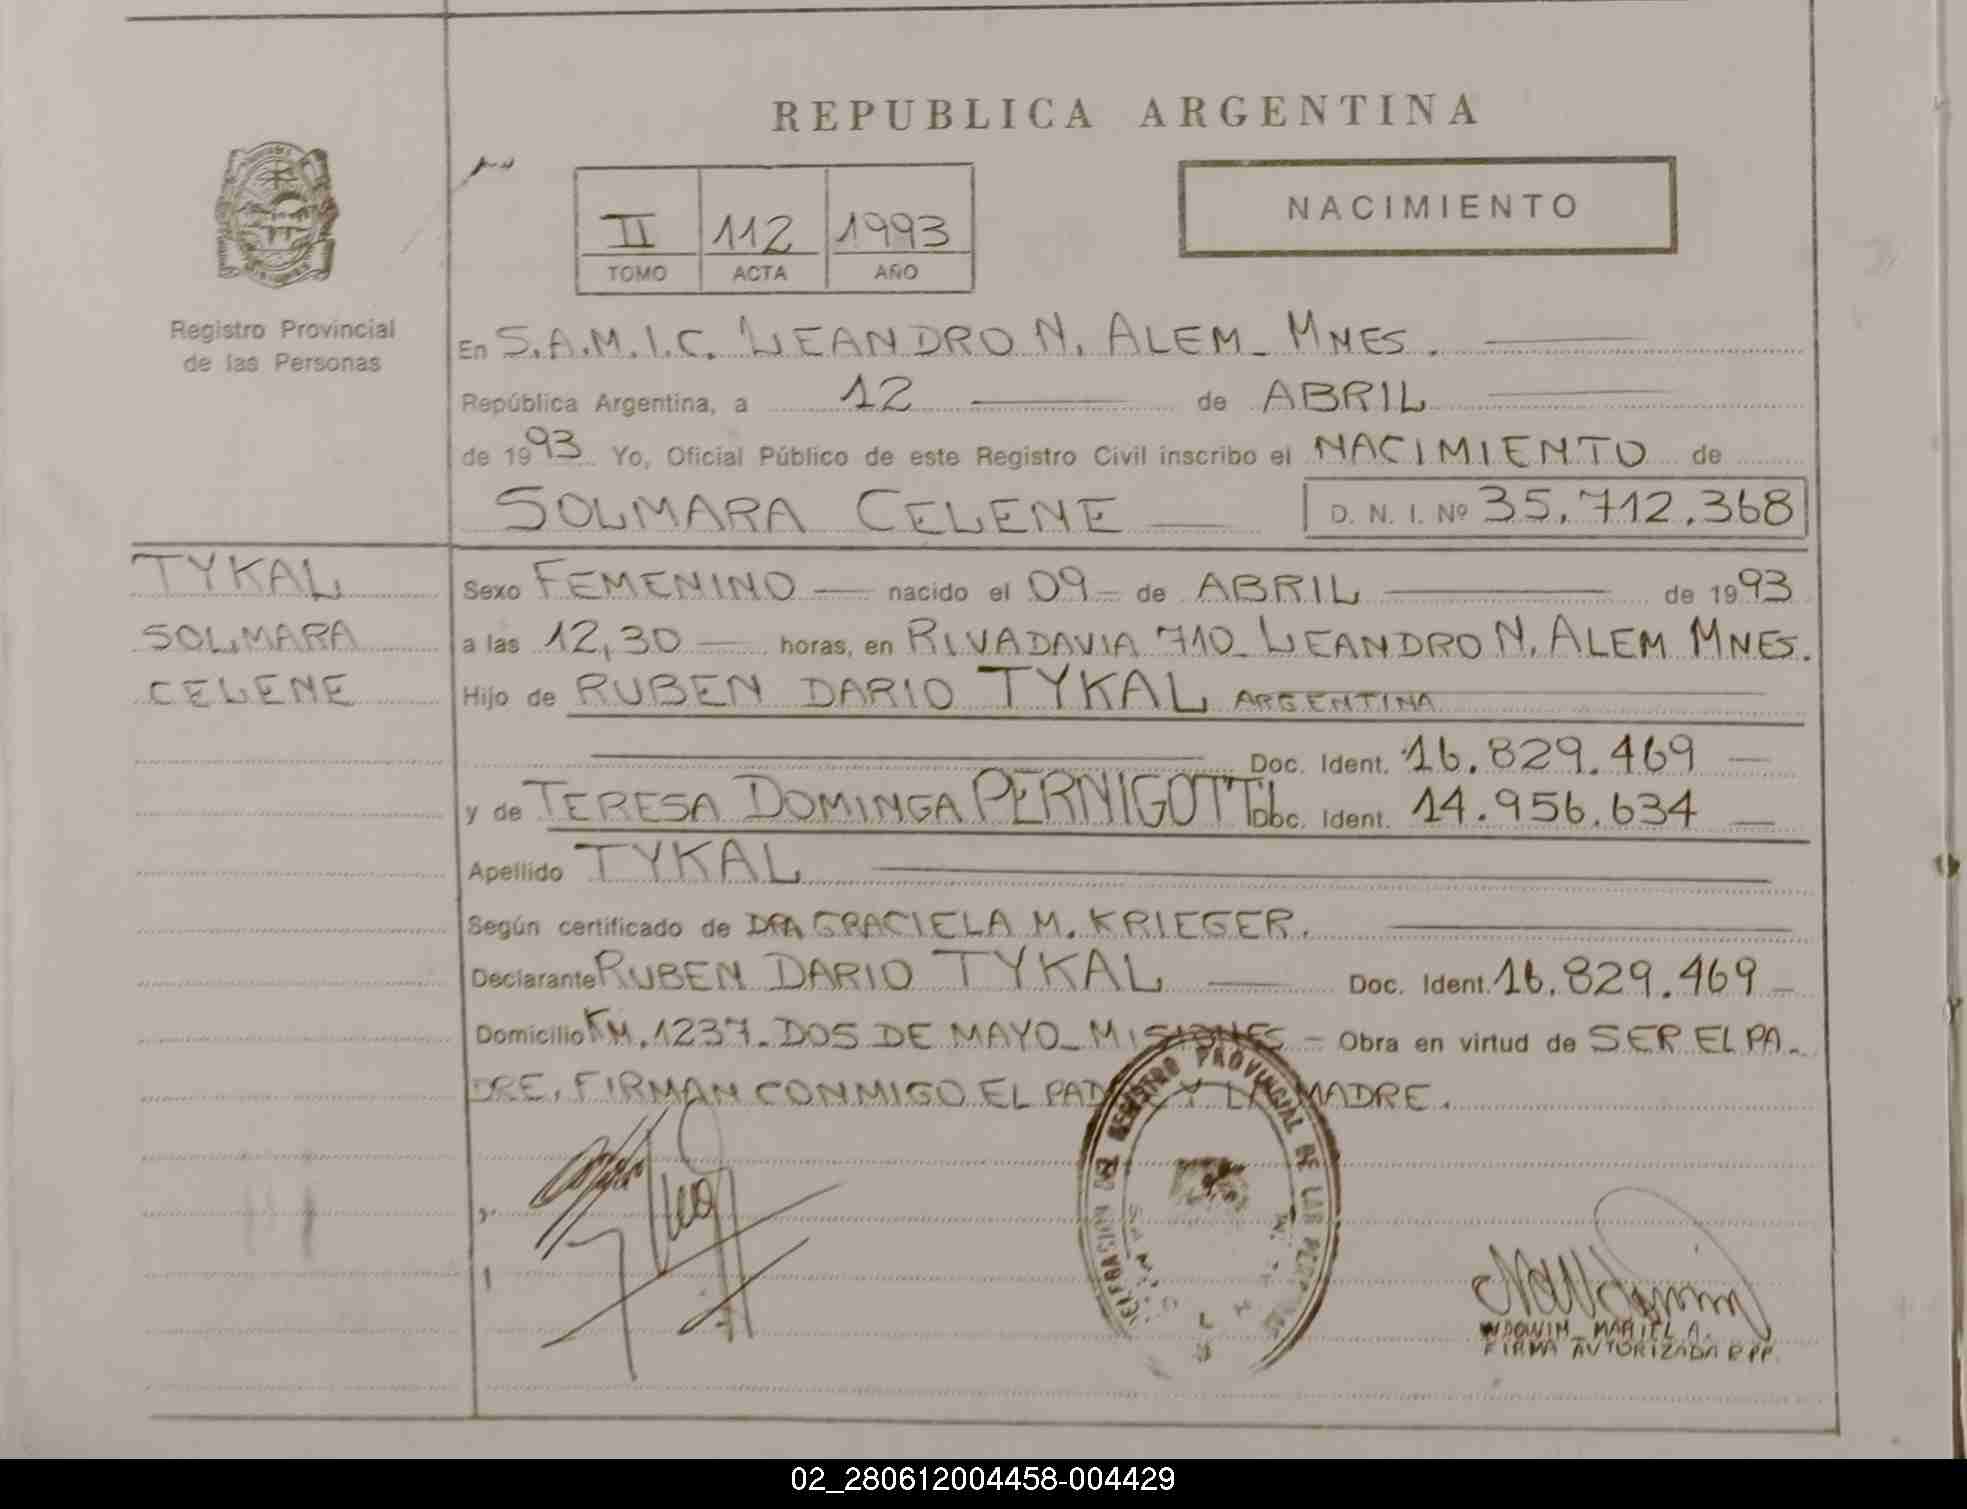 REPUBLICA ARGENTINA
NACIMIENTO
II 112 1993
TOMO ACTA AÑO
Registro Provincial
de las Personas
En S.A.M.I.C. LEANDRO N. ALEM - MNES.
República Argentina, a 12 de ABRIL
de 1993 Yo, Oficial Público de este Registro Civil inscribo el NACIMIENTO de
SOLMARA CELENE D. N. I. Nº 35.712.368
TYKAL
SOLMARA
CELENE
Sexo FEMENINO nacido el 09 de ABRIL de 1993
a las 12,30 horas, en RIVADAVIA 710 - LEANDRO N. ALEM MNES.
Hijo de RUBEN DARIO TYKAL ARGENTINA
Doc. Ident. 16.829.469
y de TERESA DOMINGA PERNIGOTTI Doc. Ident. 14.956.634
Apellido TYKAL
Según certificado de DRA GRACIELA M. KRIEGER.
Declarante RUBEN DARIO TYKAL Doc. Ident. 16.829.469
Domicilio KM. 1237 - DOS DE MAYO - MISIONES - Obra en virtud de SER EL PA-
DRE, FIRMAN CONMIGO EL PADRE Y LA MADRE.
REGISTRO PROVINCIAL DE LAS
WDOWIN - MARIEL A.
FIRMA AUTORIZADA R.P.P.
02_280612004458-004429